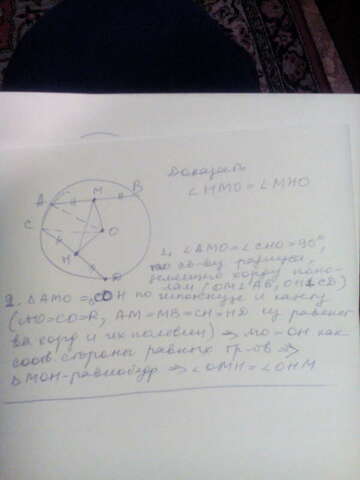 Доказать
∠HMO = ∠MHO
A
M
B
C
O
H
D
1. ∠AMO = ∠CHO = 90°,
по св-ву радиуса,
делящего хорду попо-
лам (OM⊥AB, OH⊥CD)
2. ∠AMO = △COH по гипотенузе и катету
(AO=CO=R, AM=MB=CH=HD из равенст
ва хорд и их половин) ⇒ MO=OH как
соотв. стороны равных тр-ов ⇒
△MOH-равнобедр ⇒ ∠OMH = ∠OHM